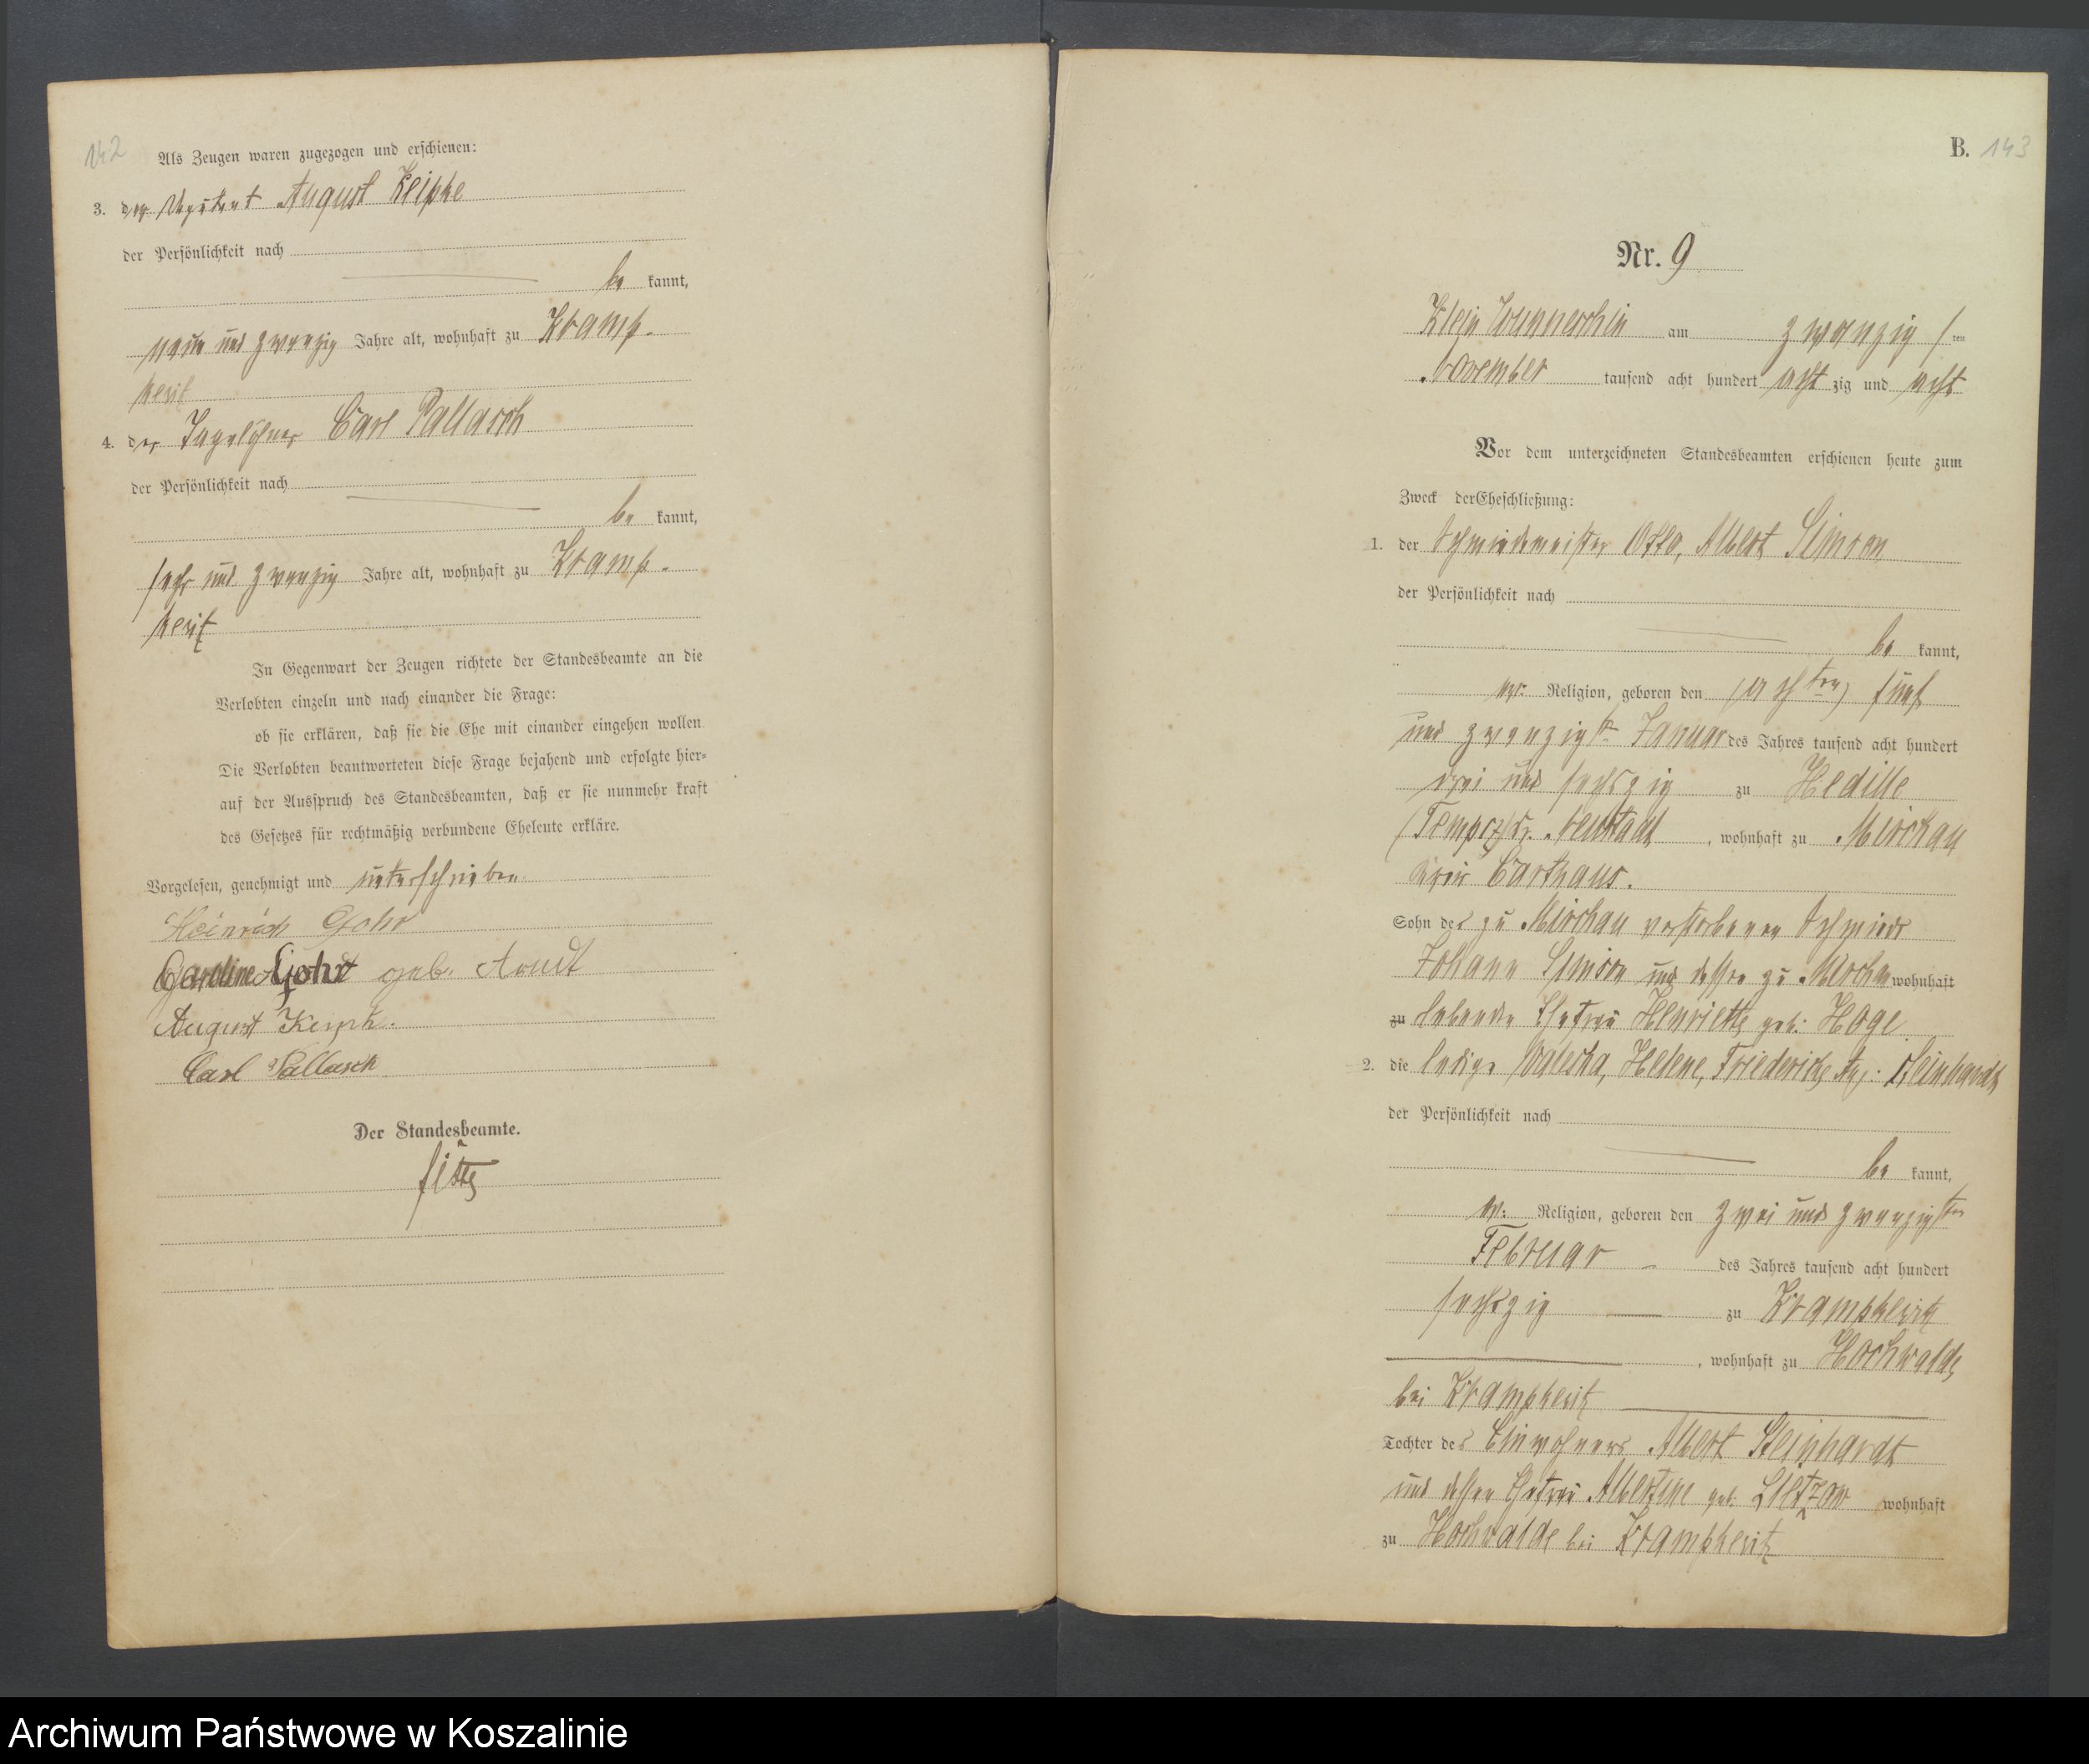 142
Als Zeugen waren zugezogen und erschienen:
3. der Deputant August Keipke
der Persönlichkeit nach
be kannt,
neun und zwanzig Jahre alt, wohnhaft zu Kramp-
kewitz
4. der Tagelöhner Carl Pallasch
der Persönlichkeit nach
be kannt,
sechs und zwanzig Jahre alt, wohnhaft zu Kramp-
kewitz
In Gegenwart der Zeugen richtete der Standesbeamte an die
Verlobten einzeln und nach einander die Frage:
ob sie erklären, daß sie die Ehe mit einander eingehen wollen
Die Verlobten beantworteten diese Frage bejahend und erfolgte hier-
auf der Ausspruch des Standesbeamten, daß er sie nunmehr kraft
des Gesetzes für rechtmäßig verbundene Eheleute erkläre.
Vorgelesen, genehmigt und unterschrieben
Heinrich Gohr
Caroline Gohr geb. Arndt
August
Carl Pallasch
Der Standesbeamte.
B. 143
Nr. 9
Klein Wunneschin am zwanzigsten
November tausend acht hundert acht zig und acht
Vor dem unterzeichneten Standesbeamten erschienen heute zum
Zweck der Eheschließung:
1. der Schmiedemeister Otto, Albert Simson
der Persönlichkeit nach
be kannt,
ev: Religion, geboren den fünf
und zwanzigst. Januar des Jahres tausend acht hundert
drei und sechszig zu Hedille
Neustadt, wohnhaft zu Mirchau
Kreis Carthaus.
Sohn des zu Mirchau verstorbenen Schmieds
Johann Simson und dessen zu Mirchau wohnhaft
zu lebenden Ehefrau Henriette geb: Hoge
2. die ledige Valeska, Helene, Friederike Steinhardt
der Persönlichkeit nach
be kannt,
ev: Religion, geboren den zwei und zwanzigsten
Februar des Jahres tausend acht hundert
sechszig zu Krampkewitz
, wohnhaft zu Hochwalde
bei Krampkewitz
Tochter des Einwohners Albert Steinhardt
und dessen Ehefrau Albertine geb. Lietzow wohnhaft
zu Hochwalde bei Krampkewitz
Archiwum Państwowe w Koszalinie